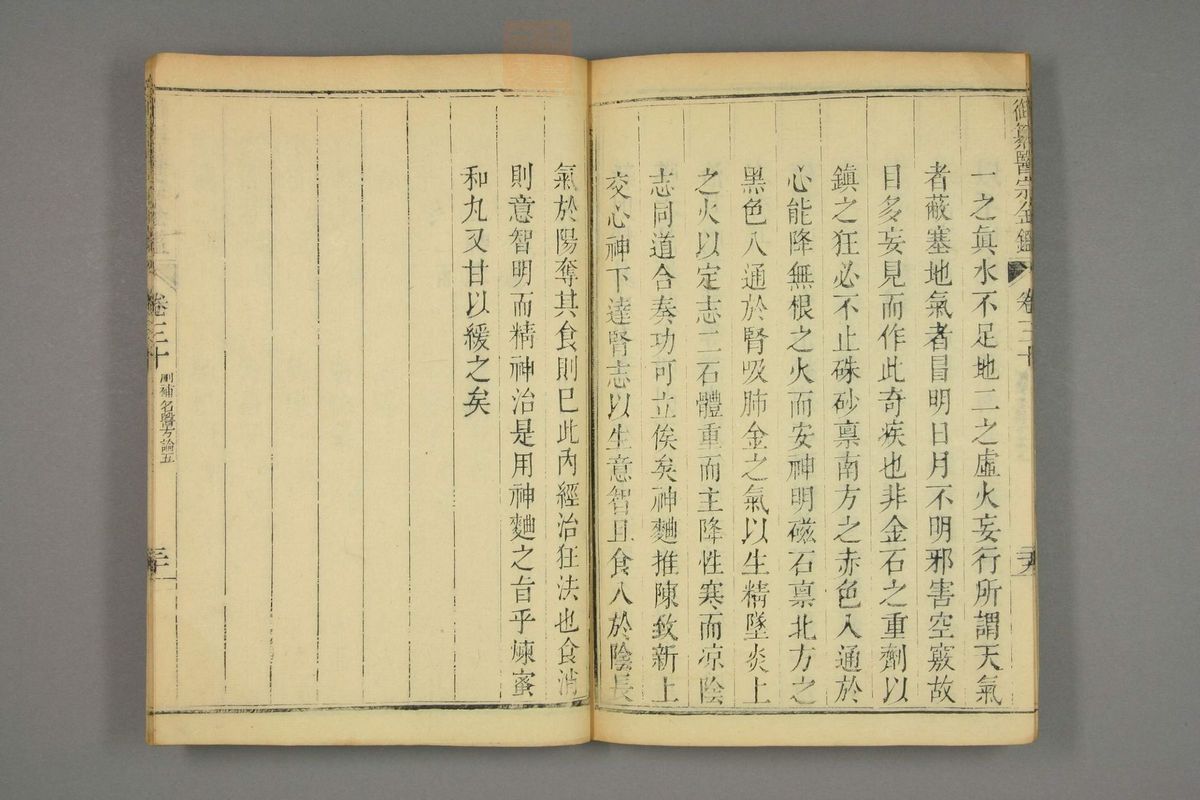 御纂醫宗金鑑
卷三十
一之眞水不足地二之虛火妄行所謂天氣
者蔽塞地氣者冒明日月不明邪害空竅故
目多妄見而作此奇疾也非金石之重劑以
鎮之狂必不止硃砂禀南方之赤色入通於
心能降無根之火而安神明磁石禀北方之
黑色入通於腎吸肺金之氣以生精墜炎上
之火以定志二石體重而主降性寒而凉陰
志同道合奏功可立俟矣神麯推陳致新上
交心神下達腎志以生意智且食入於陰長
氣於陽奪其食則已此內經治狂法也食消
則意智明而精神治是用神麯之旨乎煉蜜
和丸又甘以緩之矣
卷三十
刪補名醫方論五